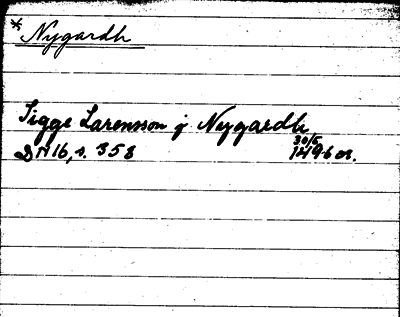 * Nygardh
Sigge Larensson j Neygardh
30/5
DN 16, s. 358 1496 or.